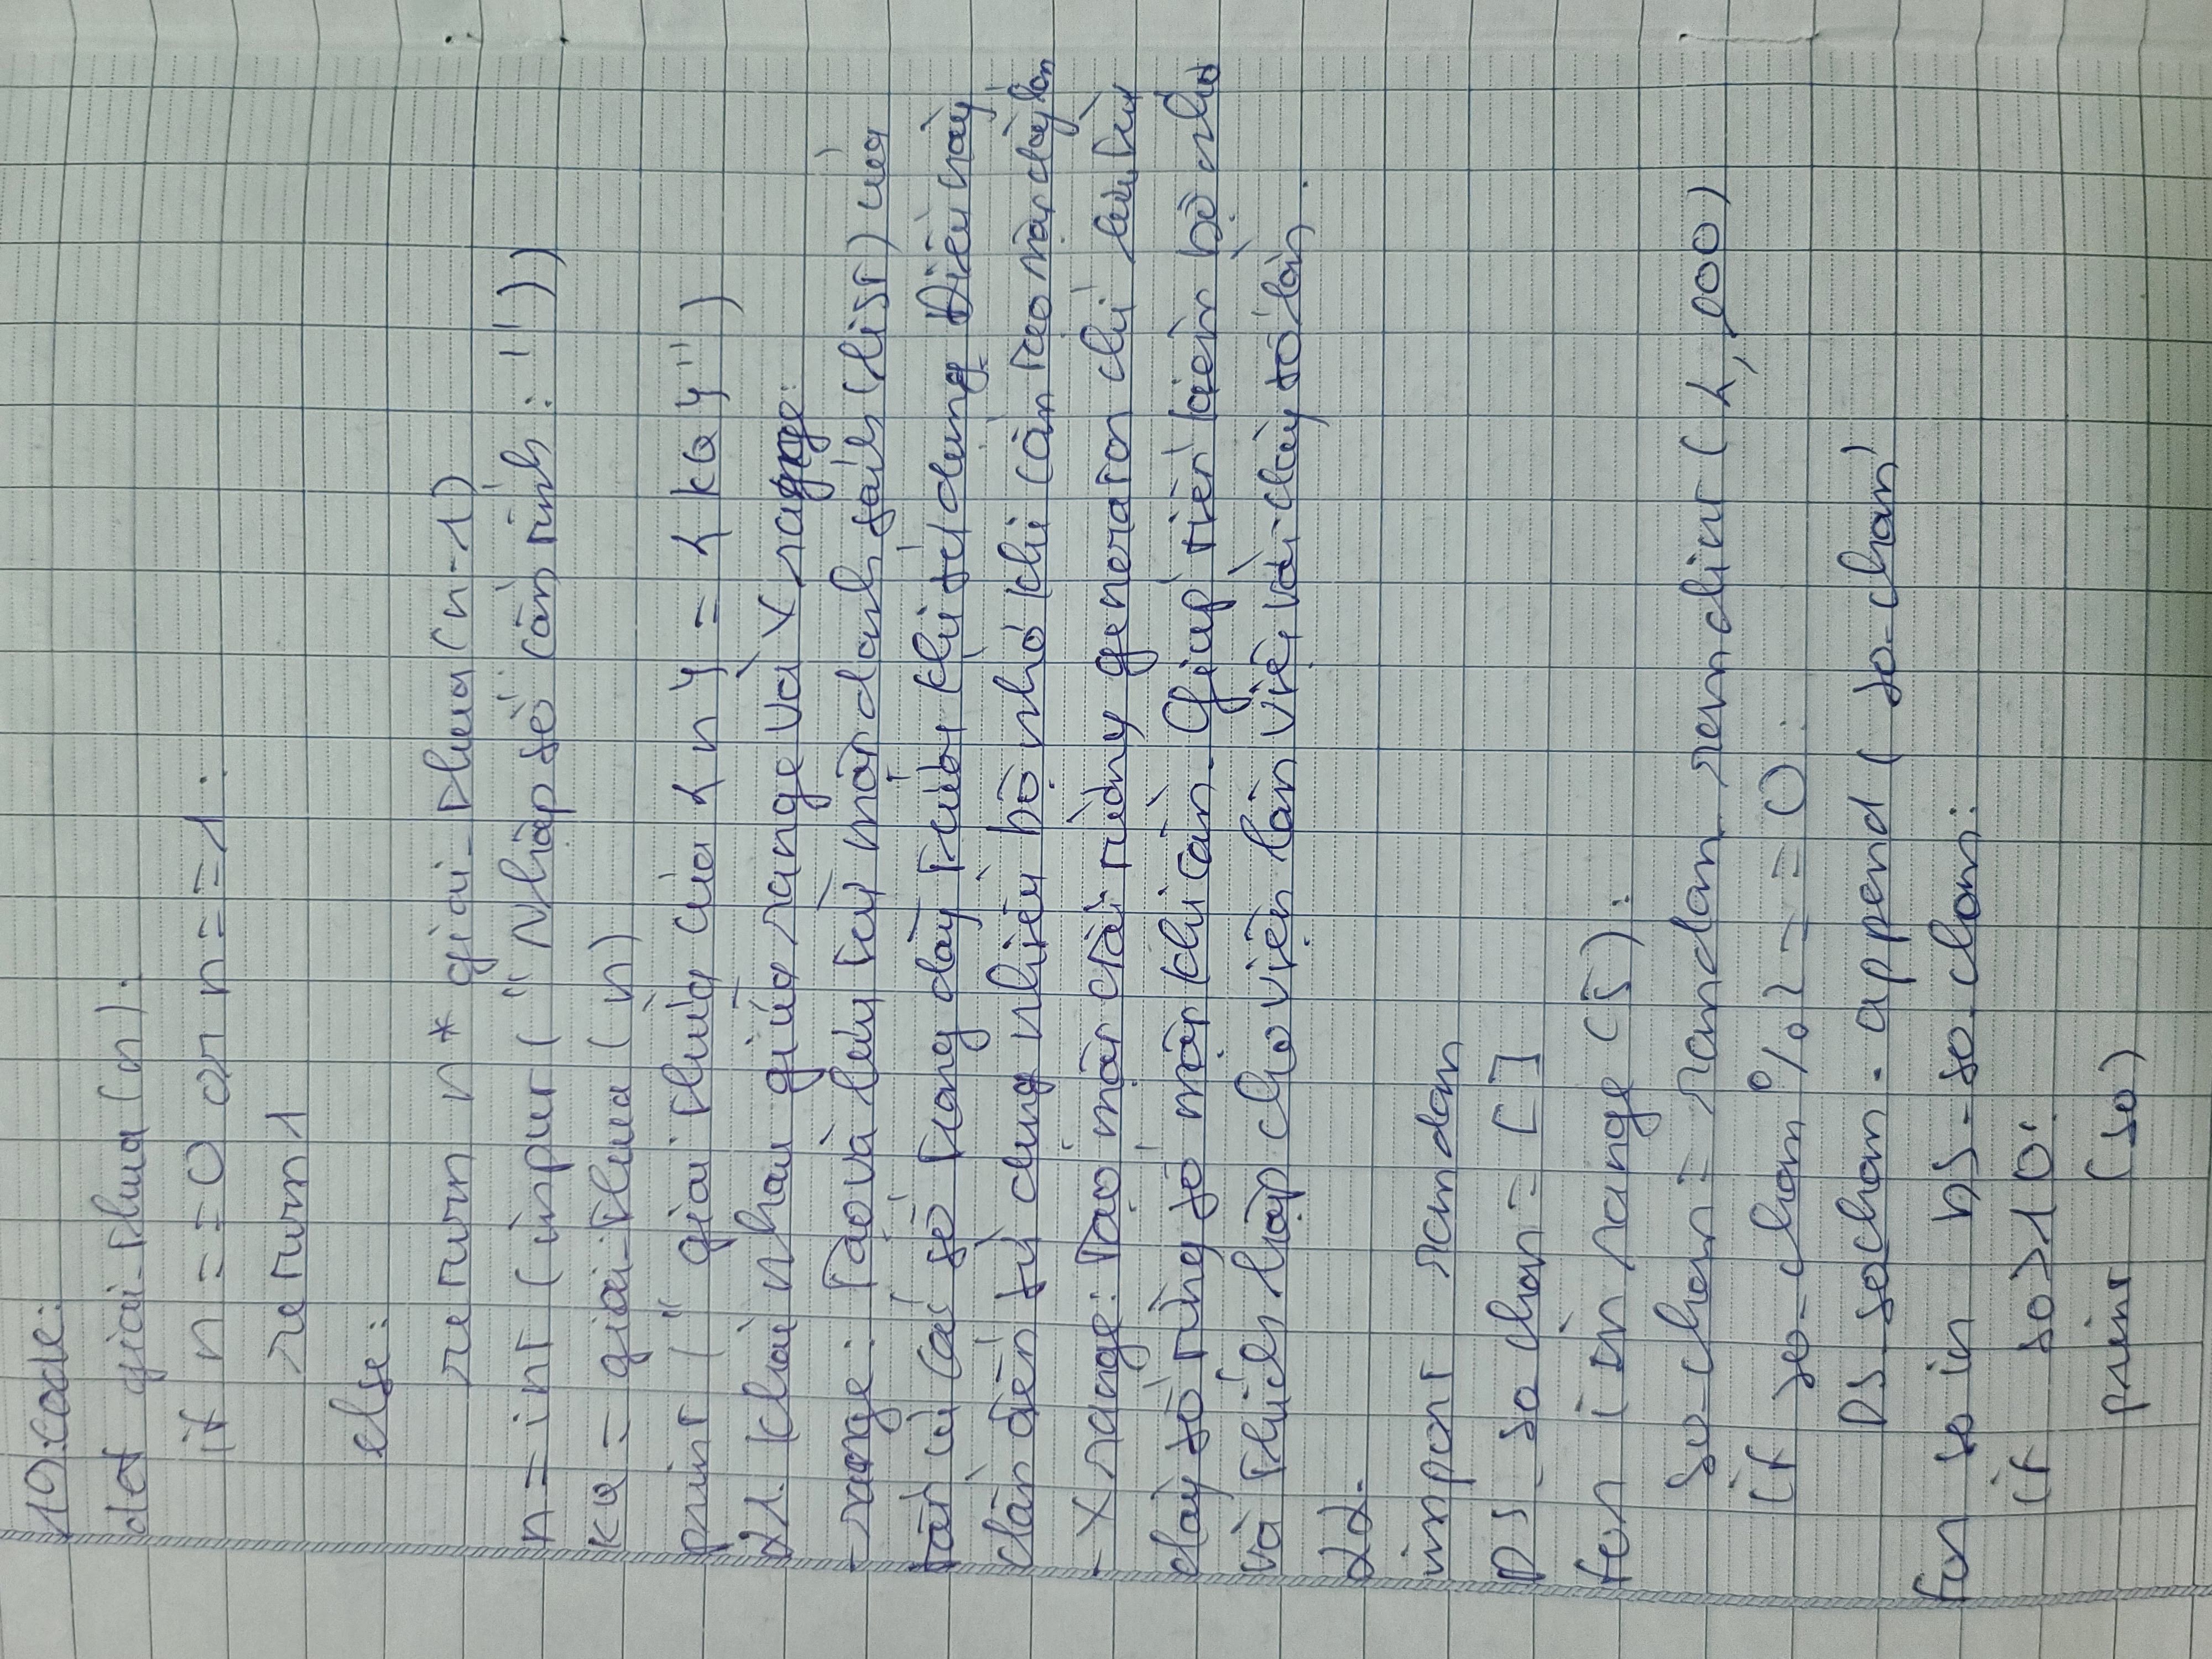 19. code:
def giai_thua(n):
if n == 0 or n == 1:
return 1
else:
return n * giai_thua(n-1)
n = int (input ("Nhập số cần tính : "))
KQ = giai_thua (n)
print (" giai thừa của {n} = {KQ}")
21. Khác nhau giữa range và Xrange:
- range: Tạo và lưu trữ một danh sách (list) của
tất cả các số trong dãy trước khi sử dụng. Điều này
dẫn đến sử dụng nhiều bộ nhớ khi cần tạo một dãy lớn
- Xrange: Tạo một đối tượng generator chỉ lưu trữ
dãy số từng số một khi cần. Giúp tiết kiệm bộ nhớ
và thích hợp cho việc làm việc với dãy số lớn.
22.
import random
DS_so chan = []
for i in range (5):
so_chan = random.randint (1, 100)
if so_chan % 2 == 0:
DS_sochan.append( so_chan)
for so in DS_so_chan:
if so>10:
print (so)